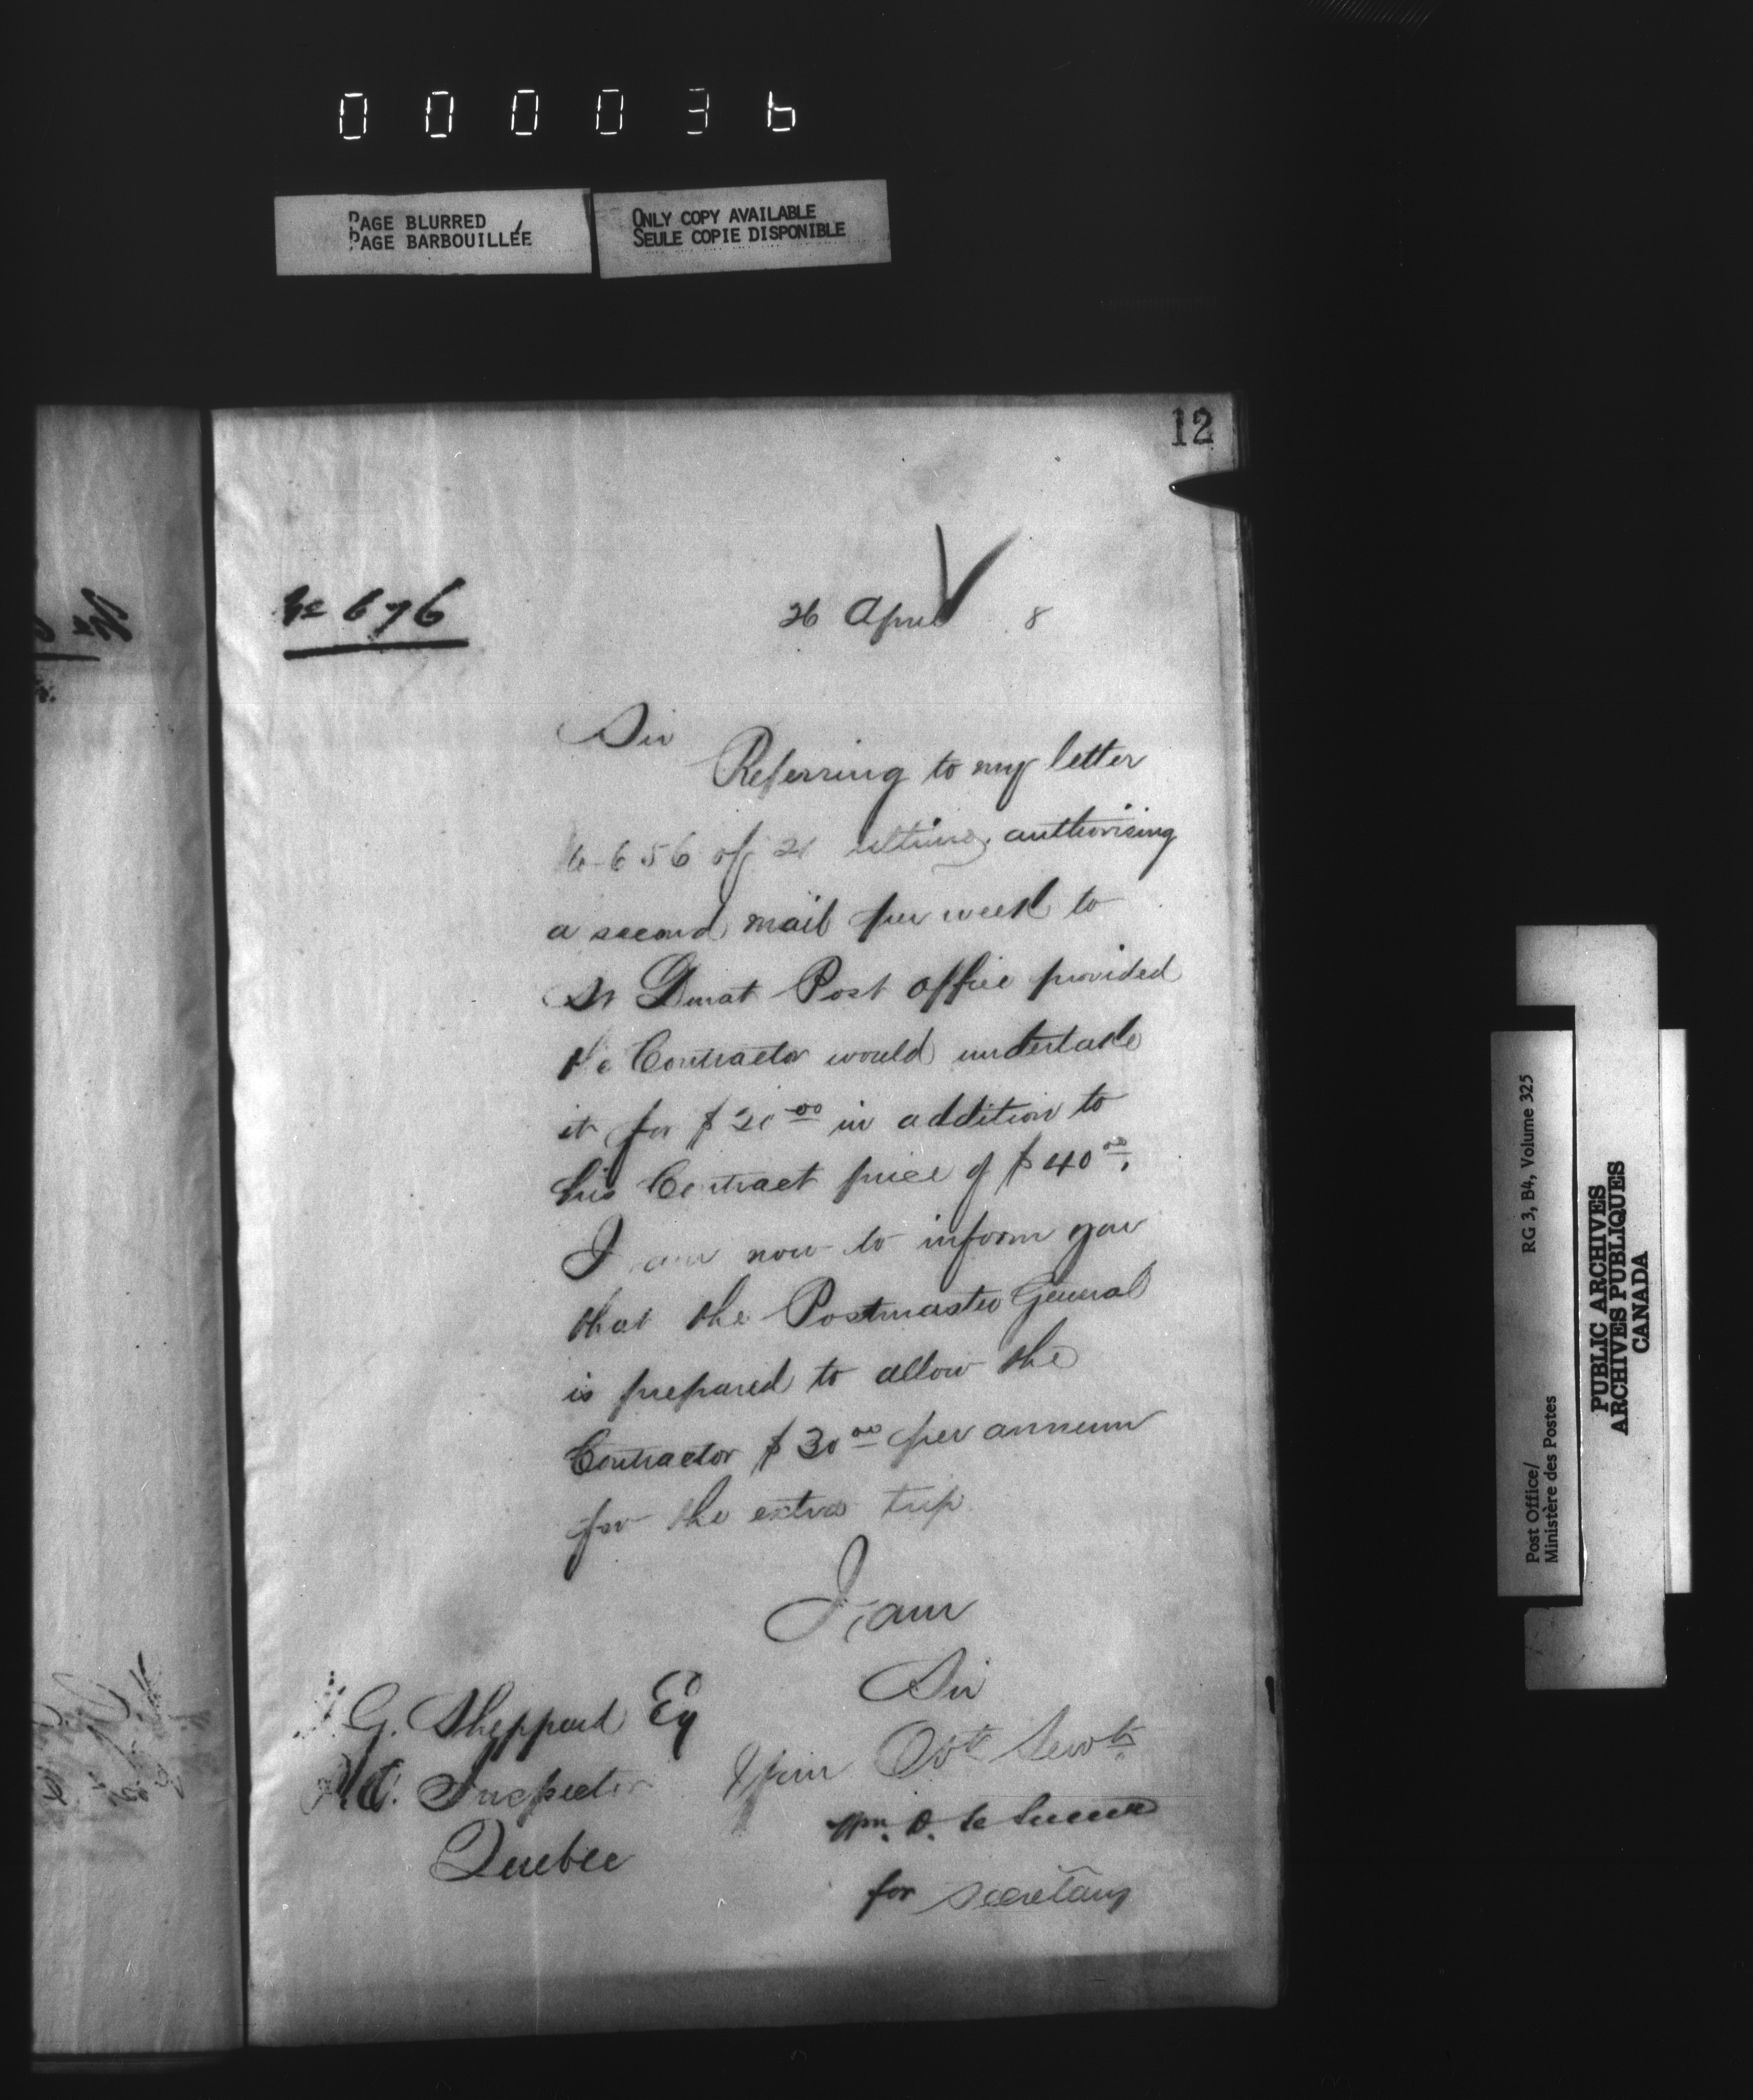 000036
PAGE BLURRED
PAGE BARBOUILLÉE
ONLY COPY AVAILABLE
SEULE COPIE DISPONIBLE
12
No 676
26 April 8
Sir
Referring to my letter
656 of 21 ultimo, authorising
a second mail per week to
St Donat Post Office provided
the Contractor would undertake
it for $20.00 in addition to
his Contract price of $40.00.
I am now to inform you
that the Postmaster General
is prepared to allow the
Contractor $30.00 per annum
for the extra trip
I am
Sir
Your Obt Servt
Wm. D. Le Sueur
for Secretary
G. Sheppard Esq
P.O. Inspector
Quebec
Post Office/
Ministère des Postes
RG 3, B4, Volume 325
PUBLIC ARCHIVES
ARCHIVES PUBLIQUES
CANADA